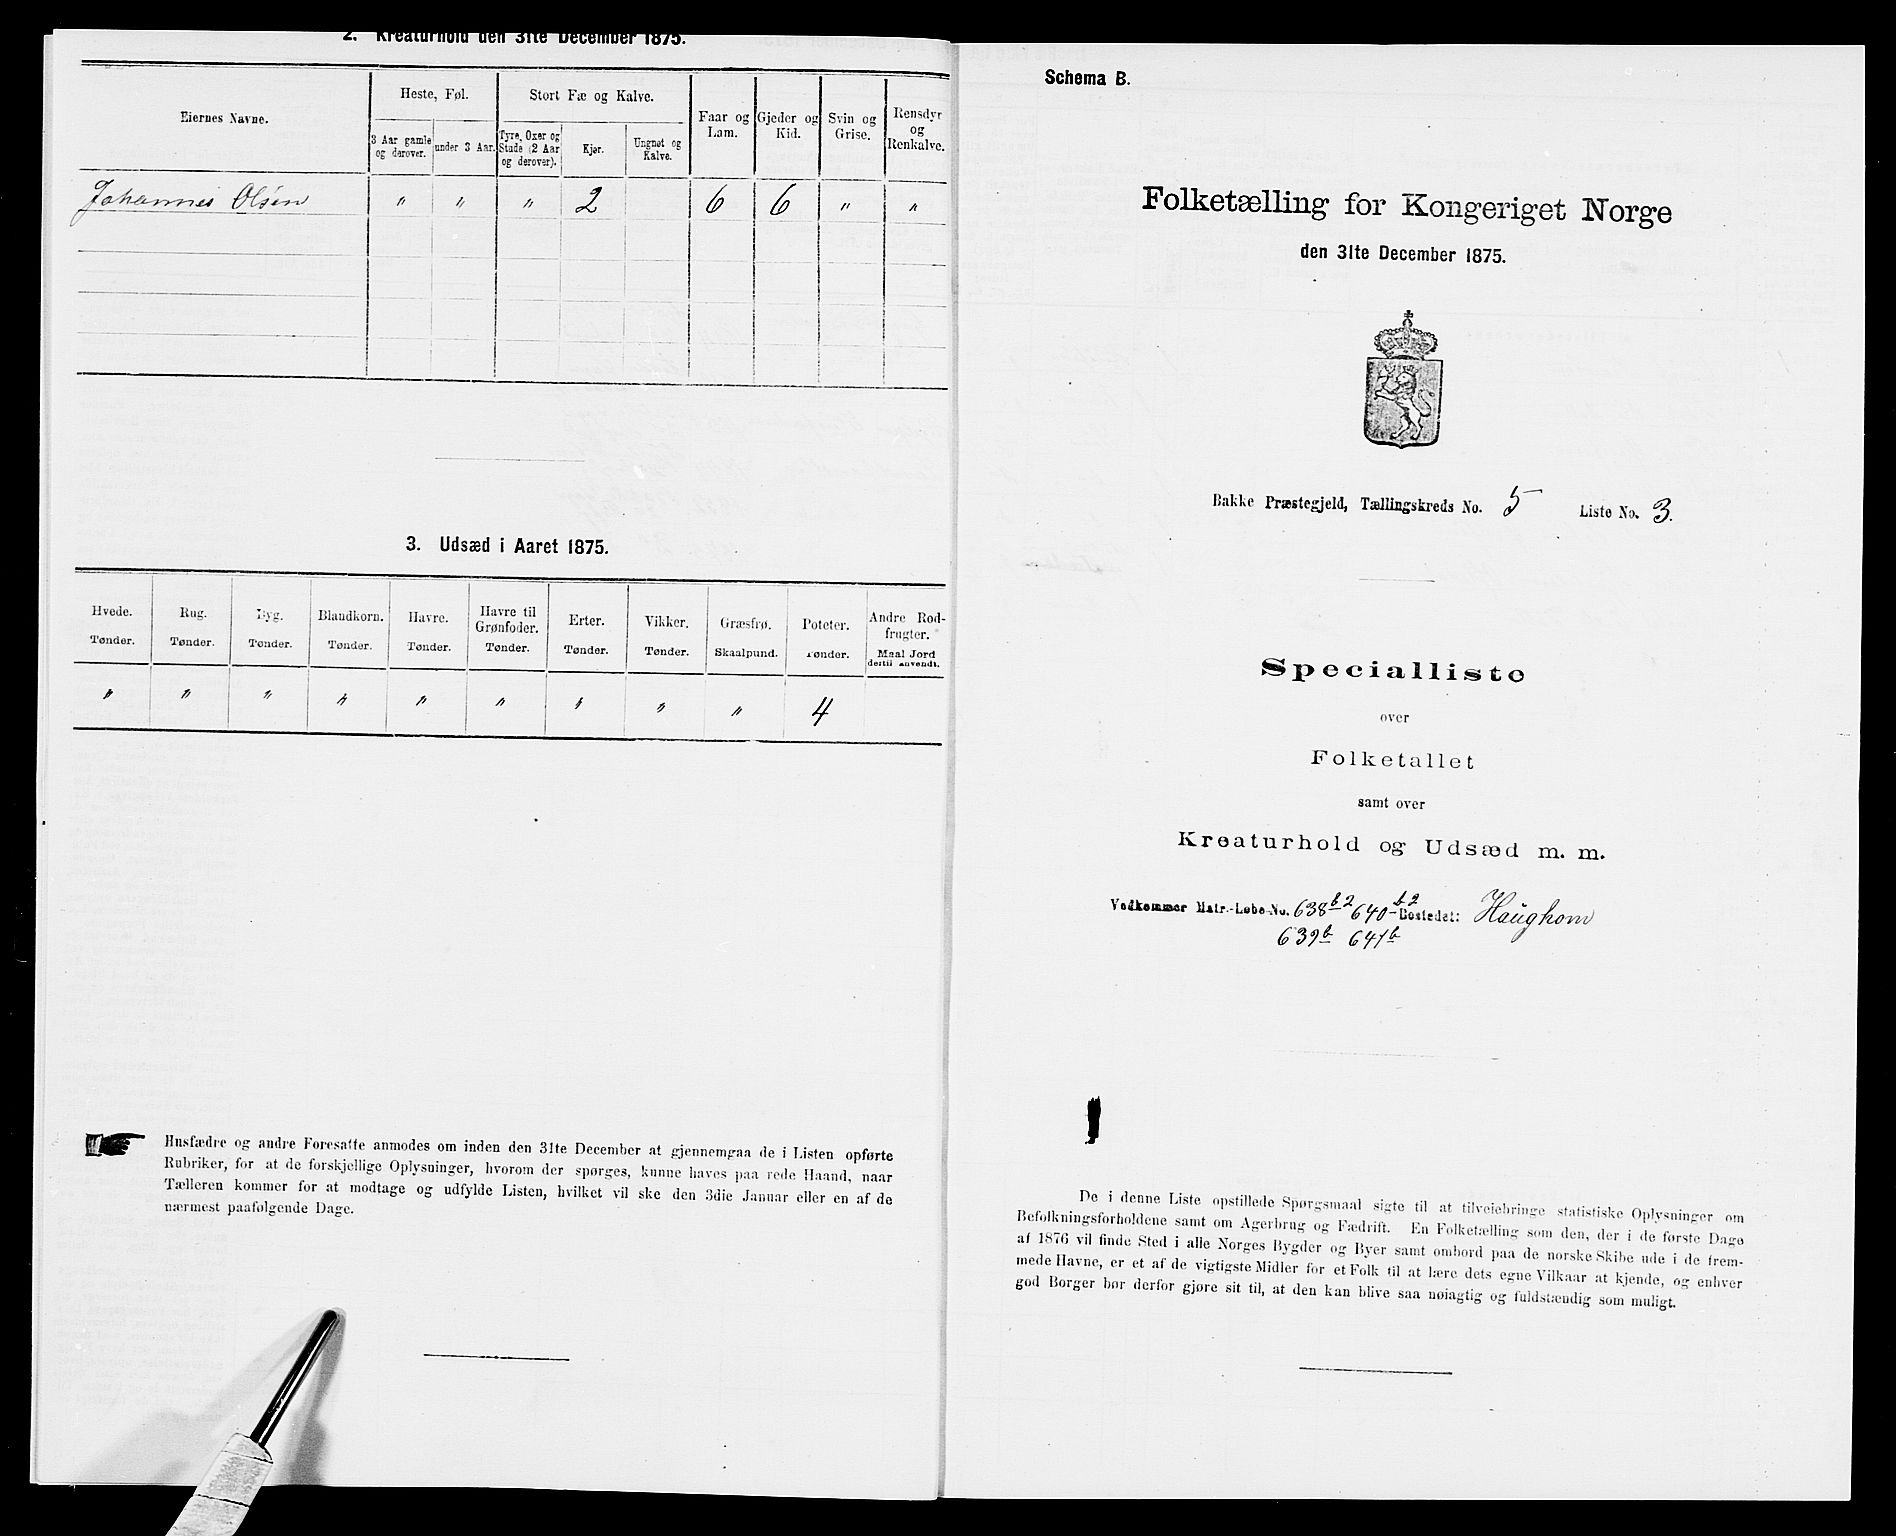 2. Kreaturhold den 31te December 1875.
Eiernes Navne.
Heste, Føl.
Stort Fæ og Kalve.
Faar og Lam.
Gjeder og Kid.
Svin og Grise.
Rensdyr og Renkalve.
3 Aar gamle og derover.
under 3 Aar.
Tyre, Oxer og Stude (2 Aar og derover).
Kjør.
Ungnøt og Kalve.
Johannes Olsen " " " 2 6 6 " "
3. Udsæd i Aaret 1875.
Hvede. Rug. Byg. Blandkorn. Havre. Havre til Grønfoder. Erter. Vikker. Græsfrø. Poteter. Andre Rodfrugter.
Tønder. Tønder. Tønder. Tønder. Tønder. Tønder. Tønder. Tønder. Skaalpund. Tønder. Maal Jord dertil anvendt.
" " " " " " " " " 4
Husfædre og andre Foresatte anmodes om inden den 31te December at gjennemgaa de i Listen opførte
Rubriker, for at de forskjellige Oplysninger, hvorom der spørges, kunne haves paa rede Haand, naar
Tælleren kommer for at modtage og udfylde Listen, hvilket vil ske den 3die Januar eller en af de
nærmest paafølgende Dage.
Schema B.
Folketælling for Kongeriget Norge
den 31te December 1875.
Bakke Præstegjeld, Tællingskreds No. 5 Liste No. 3.
Specialliste
over
Folketallet
samt over
Kreaturhold og Udsæd m. m.
Vedkommer Matr.-Løbe-No. 638 b 2 640 b 2 Bostedet: Haughom
639 b 641 b
De i denne Liste opstillede Spørgsmaal sigte til at tilveiebringe statistiske Oplysninger om
Befolkningsforholdene samt om Agerbrug og Fædrift. En Folketælling som den, der i de første Dage
af 1876 vil finde Sted i alle Norges Bygder og Byer samt ombord paa de norske Skibe ude i de frem-
mede Havne, er et af de vigtigste Midler for et Folk til at lære dets egne Vilkaar at kjende, og enhver
god Borger bør derfor gjøre sit til, at den kan blive saa nøiagtig og fuldstændig som muligt.